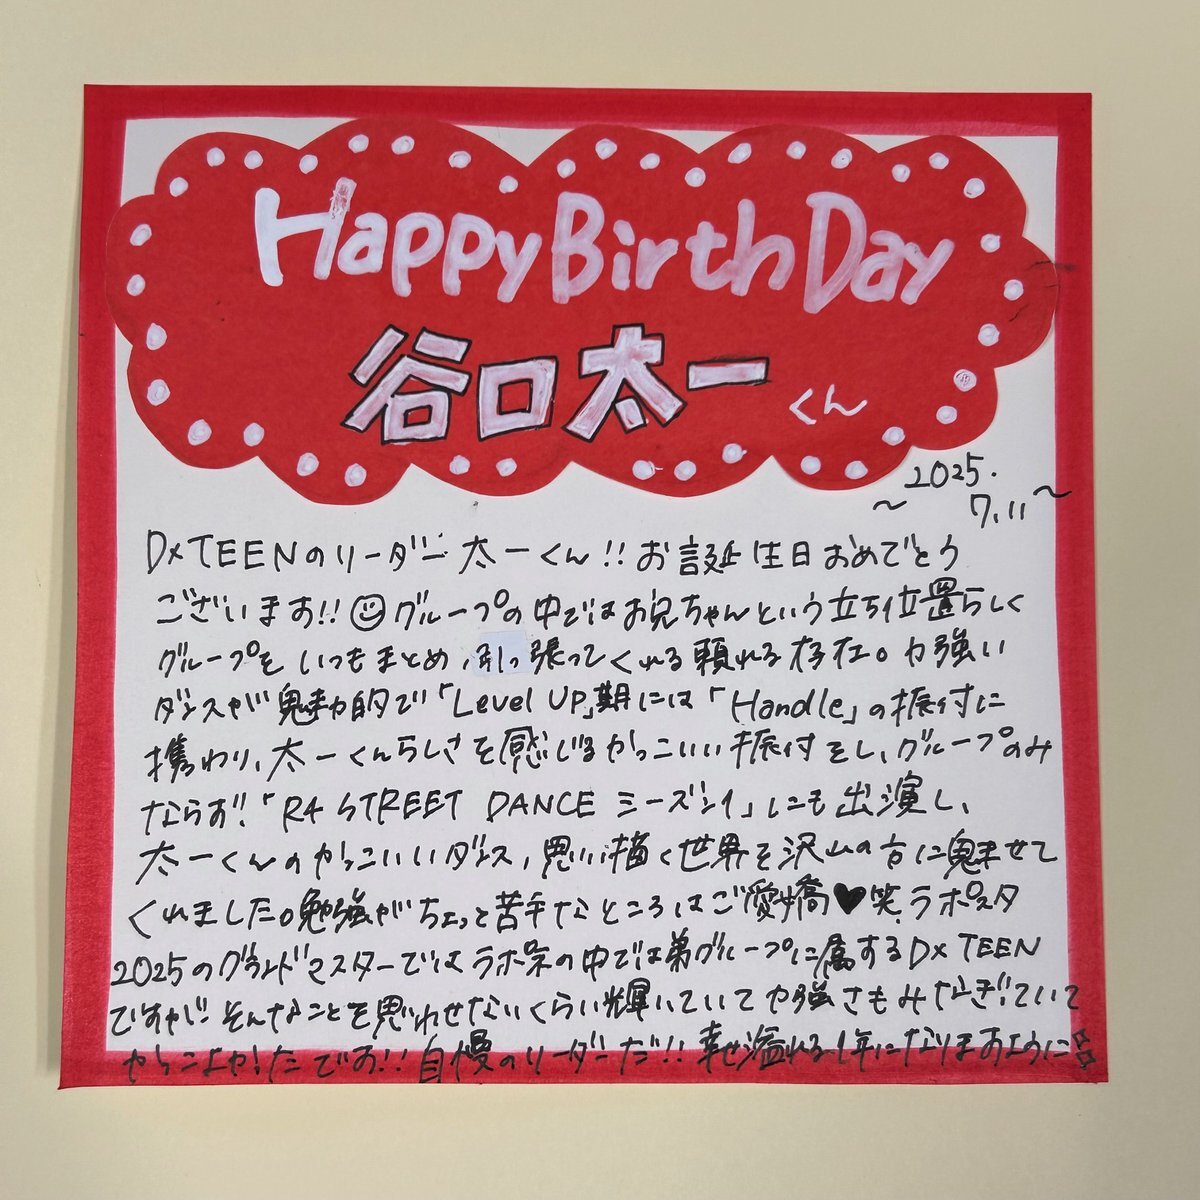 Happy Birth Day
谷口太一くん
～2025.
7.11～
DXTEENのリーダー太一くん!!お誕生日おめでとう
ございます!!グループの中ではお兄ちゃんという立ち位置らしく
グループをいつもまとめ、引っ張ってくれる頼れる存在。力強い
ダンスが魅力的で「Level UP」期には「Handle」の振付に
携わり、太一くんらしさを感じるかっこいい振付をし、グループのみ
ならず!「R4 STREET DANCE シーズン1」にも出演し、
太一くんのかっこいいダンス、思い描く世界を沢山の方に魅せて
くれました。勉強がちょっと苦手なところはご愛嬌♥笑 ラポスタ
2025のグランドマスターではラポ祭の中では弟グループに属するDXTEEN
ですが、そんなことを思わせないくらい輝いていて力強さもみなぎっていて
かっこよかったです!!自慢のリーダーだ!!幸せ溢れる1年になりますように